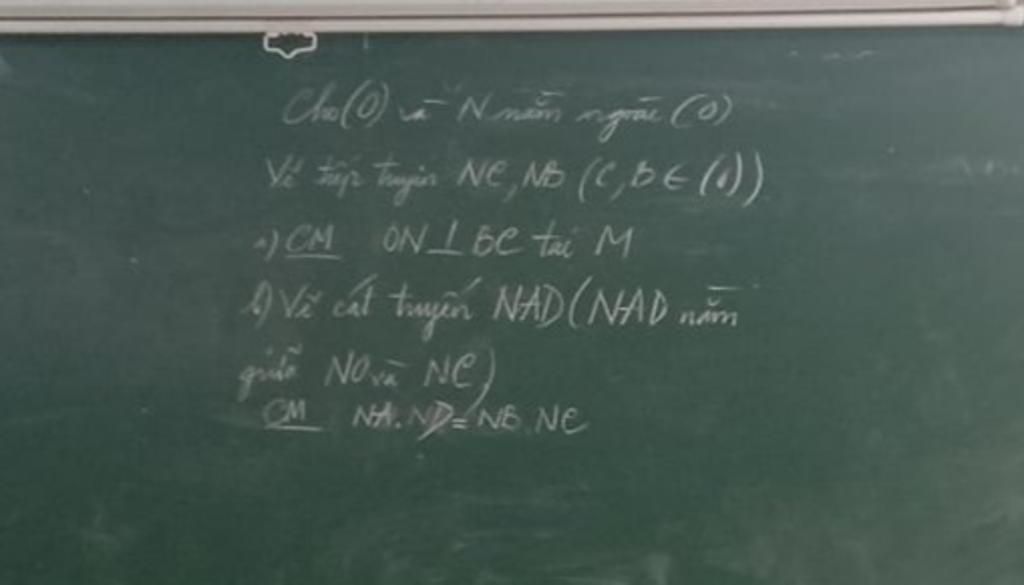 Cho (O) và N nằm ngoài (O)
Vẽ tiếp tuyến NC, NB (C, B ∈ (O))
a) CM ON ⊥ BC tại M
b) Vẽ cát tuyến NAD (NAD nằm
giữa NO và NC)
CM NA. ND = NB. NC